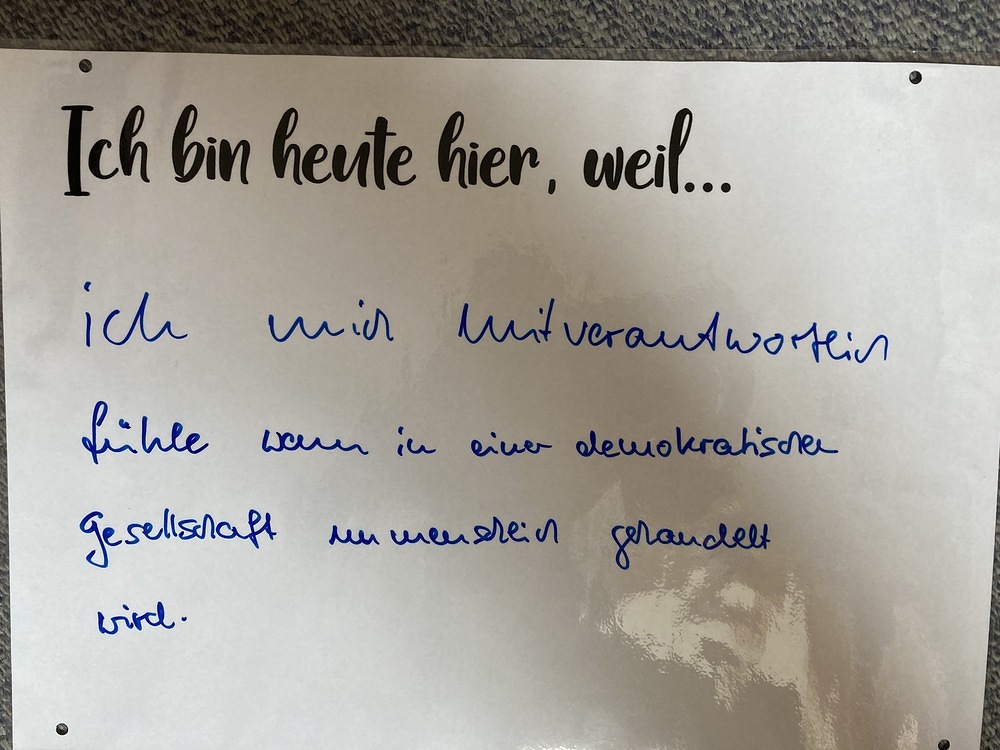 Ich bin heute hier, weil...
ich mich mitverantwortlich
fühle wenn in einer demokratischen
Gesellschaft unmenschlich gehandelt
wird.